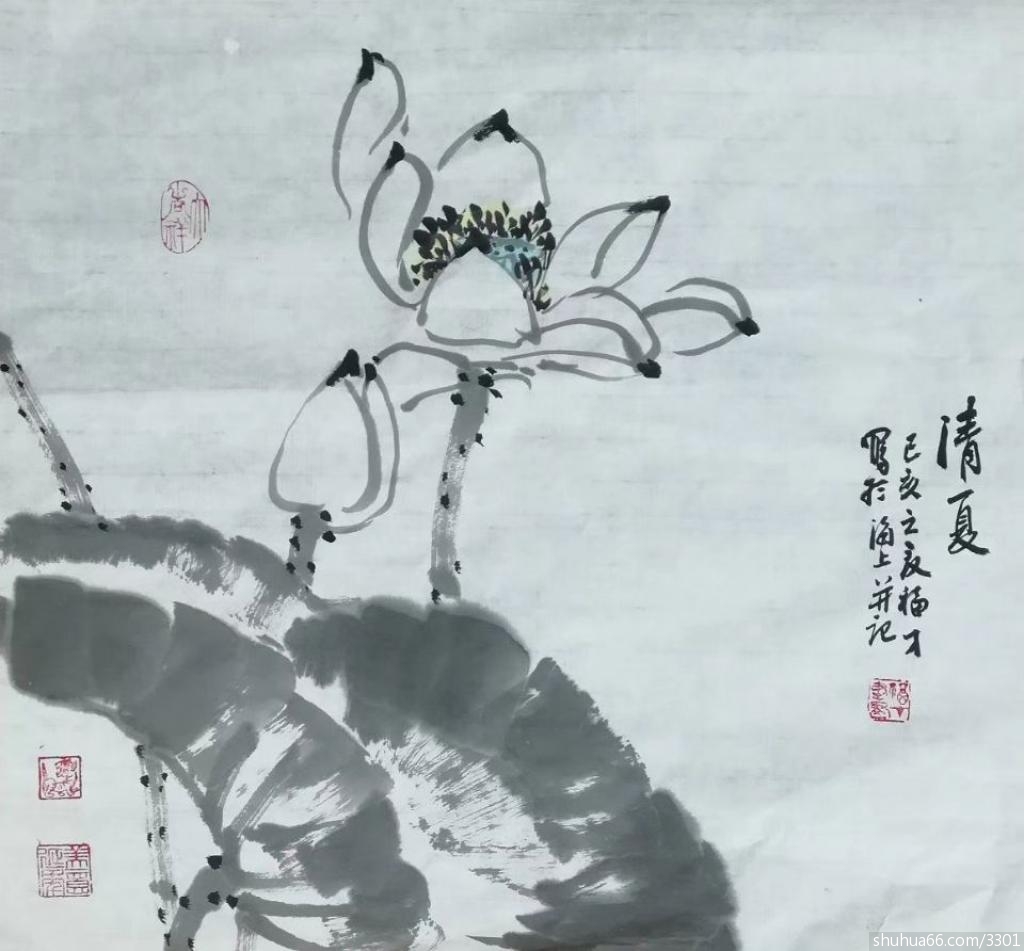 清夏
己亥之夜福才
写於海上并记
大吉祥
shuhua66.com/3301